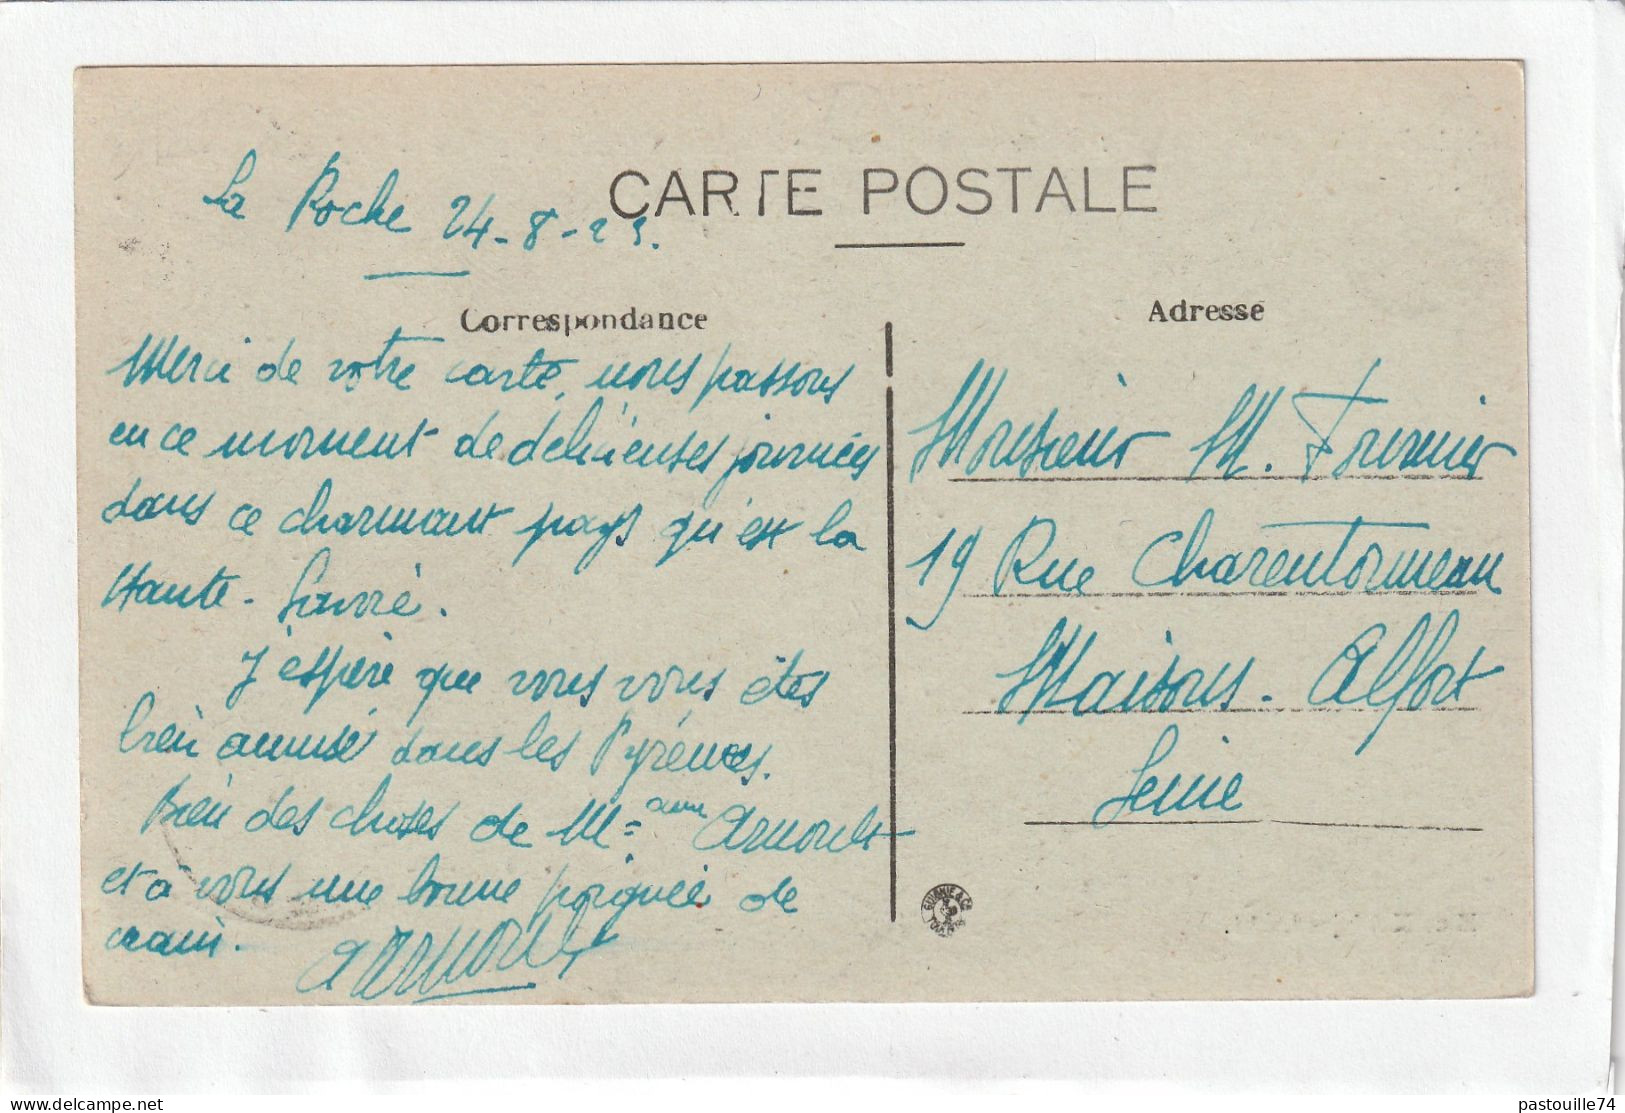 CARTE POSTALE
La Roche 24-8-23.
Correspondance
Merci de votre carte, nous passons
en ce moment de délicieuses journées
dans ce charmant pays qu'est la
Haute-Savoie.
J'espère que vous vous êtes
bien amusé dans les Pyrénées.
Bien des choses de M=ame Arnoult
et à vous une bonne poignée de
main.
Arnoult
Adresse
Monsieur M. Fournier
19 Rue Charentonneau
Maisons-Alfort
Seine
pastouille74